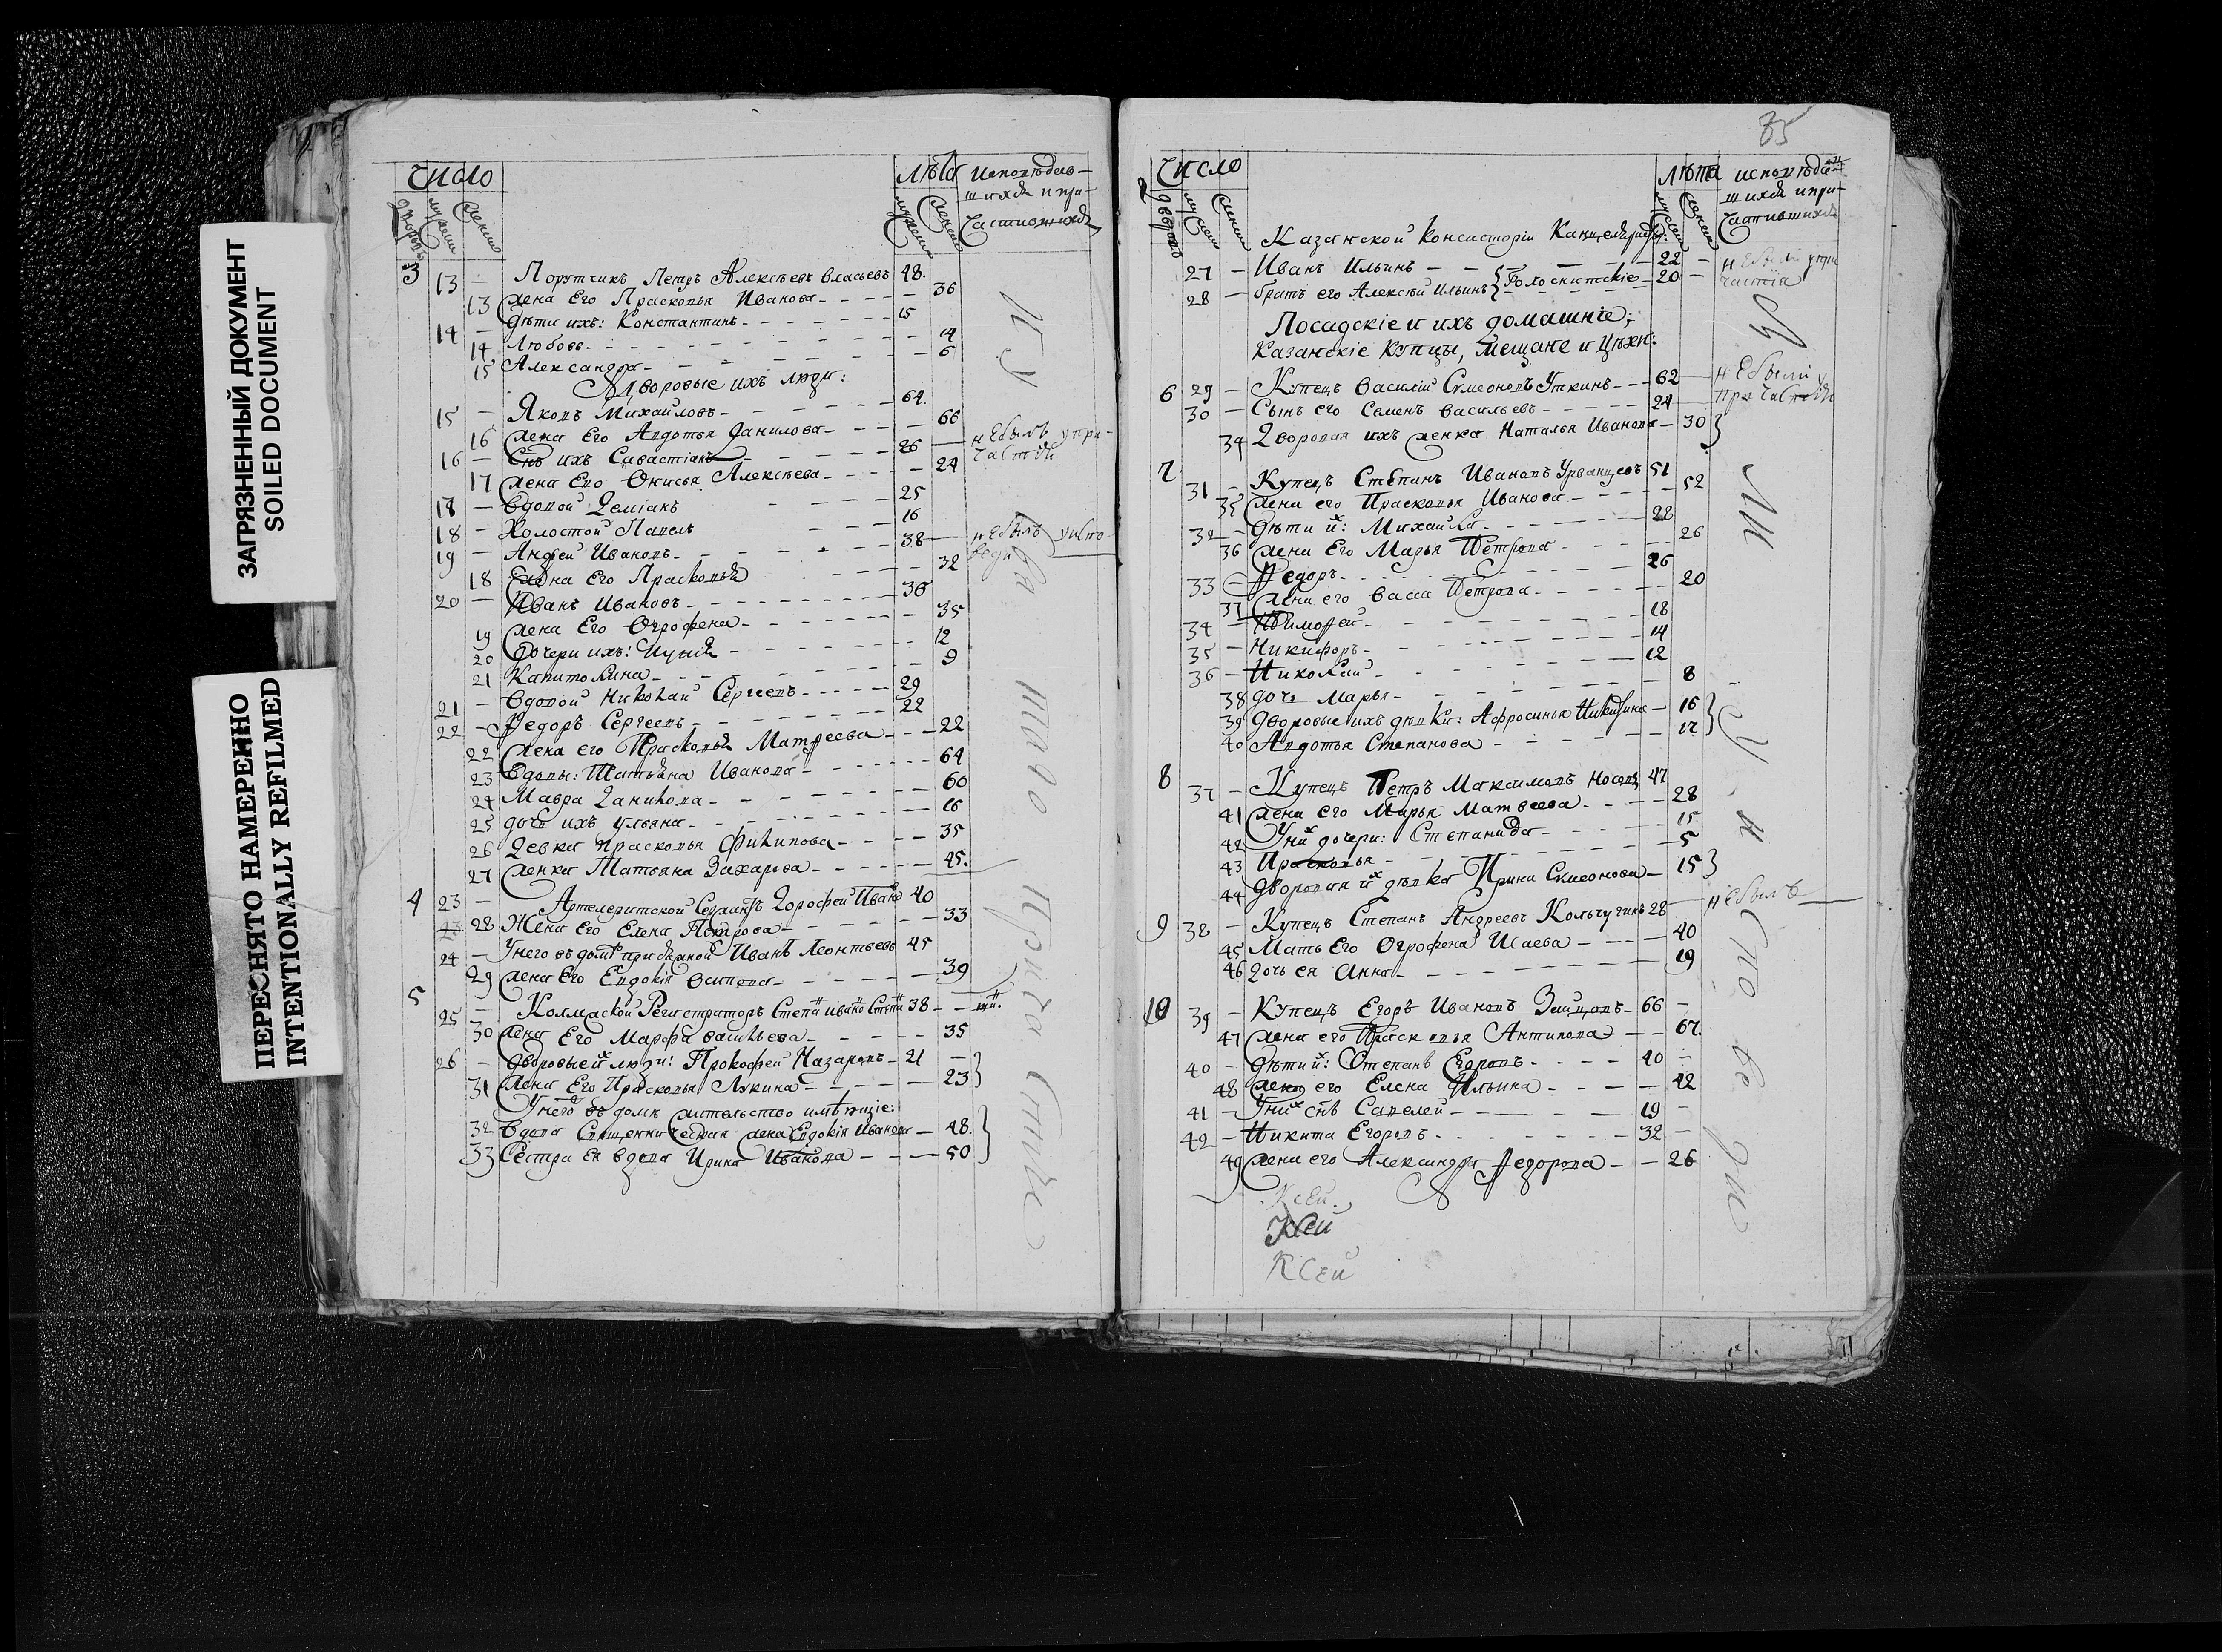 ЗАГРЯЗНЕННЫЙ ДОКУМЕНТ
SOILED DOCUMENT
ПЕРЕСНЯТО НАМЕРЕННО
INTENTIONALLY REFILMED
число
лѣта
исповѣдав-
шихся и при-
частившихся
3 13 — Порутчикъ Петръ Алексѣевъ Власьевъ 48.
13 жена Его Прасковья Иванова — 36
14 — Дѣти ихъ: Константинъ 15
14 Любовь — 14
15 Александра — 6
Дворовые ихъ люди:
15 — Яковъ Михайловъ 64.
16 жена Его Авдотья Данилова — 66
16 — Снъ ихъ Савастіанъ 26 — не былъ у при-
частія
17 жена Его Ѳнисья Алексѣева — 24
17 — Вдовой Деміанъ 25
18 — Холостой Павелъ 16
19 — Андрей Ивановъ 38 — не былъ
18 жена Его Прасковья — 32
20 — Иванъ Ивановъ 36
19 жена Его Огрофена — 35
20 Дочери ихъ: — 12
21 Капитолина — 9
21 — Вдовой Николай Сергеевъ 29
22 — Ѳедоръ Сергеевъ 22
22 жена его Прасковья Матвеева — 22
23 Вдовы: Татьяна Иванова — 64
24 Мавра Данилова — 60
25 дочь ихъ ульяна — 16
26 Девка Прасковья Филипова — 35
27 женка Татьяна Захарова — 45.
4 23 — Дорофей Ивано 40
28 Жена Его Елена Петрова — 33
24 — У него въ домѣ Иванъ Леонтьевъ 45
29 жена Его Евдокія Осипова — 39
5 25 — Регистраторъ Степа 38 —
30 жена Его Марфа Васильева — 35
26 — Дворовые их люди: Прокофей Назаровъ 21 —
31 жена Его Прасковья Лукина — 23
У него въ домѣ жительство имѣющіе:
32 Вдова Священническая жена Евдокія Иванова — 48.
33 Сестра Ея вдова Ирина Иванова — 50
85
число
лѣта
исповѣдав
шихся и при-
частившихся
Казанской Консисторіи
27 — Иванъ Ильинъ — 22 — не были у при
частія
28 — братъ его Алексѣй Ильинъ 20 —
Посадскіе и ихъ домашніе;
Казанскіе Купцы, Мещане и Цѣхи:
6 29 — Купецъ Василій Симеоновъ Уткинъ 62 — не были у
причастія
30 — Сынъ его Семенъ Васильевъ 24
34 Дворовая ихъ женка Наталья Иванова — 30
7 31 — Купецъ Степанъ Ивановъ Урванцовъ 51
35 жена его Прасковья Иванова — 52
32 — Дѣти их: Михайла 28
36 жена Его Марья Петрова — 26
33 — Ѳедоръ 26
37 жена его Васса Петрова — 20
34 — Тимофей 18
35 — Никифоръ 14
36 — Николай 12
38 дочь Марья — 8
39 Дворовые ихъ дѣвки: Афросинья Никифирова — 16
40 Авдотья Степанова — 17
8 37 — Купецъ Петръ Максимовъ Носовъ 47
41 жена его Марья Матвеева — 28
42 У них дочери: Степанида — 15
43 Прасковья — 5
44 Дворовая их дѣвка Ирина Симеонова — 15
9 38 — Купецъ Степанъ Андреевъ Кольчугинъ 28 — не былъ
45 Мать Его Огрофена Исаева — 40
46 Дочь ея Анна — 19
10 39 — Купецъ Егоръ Ивановъ Зайцовъ 66 —
47 жена его Прасковья Антипова — 67.
40 — Дѣти их: Степанъ Егоровъ 40 —
48 жена его Елена Ильина — 42
41 — У них снъ Савелей 19 —
42 — Никита Егоровъ 32 —
49 жена его Александра Ѳедорова — 26
Ксей
Ксей
Ксей